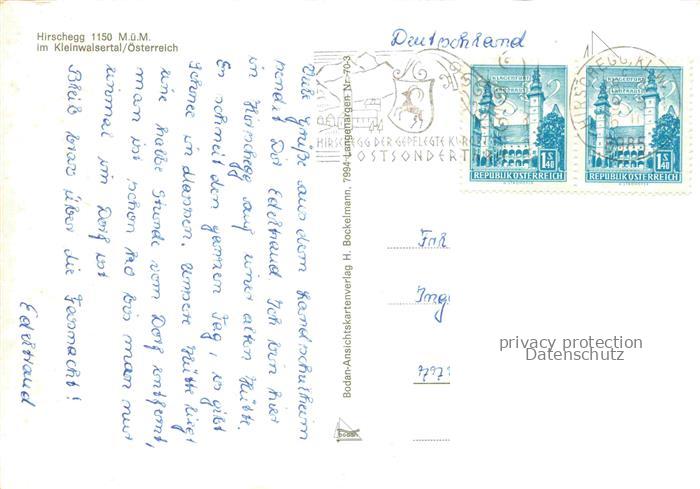 Hirschegg 1150 M.ü.M.
im Kleinwalsertal/Österreich
Viele Grüße aus dem Landschulheim
sendet Dir Edeltraud Ich bin hier
in Hirschegg auf einer alten Hütte.
Es schneit den ganzen Tag, es gibt
Schnee in Massen. Unsere Hütte liegt
eine halbe Stunde vom Dorf entfernt,
man ist schon bis man nur
einmal im Dorf ist
Bleib brav über die Fasnacht!
Edeltraud
Bodan-Ansichtskartenverlag H. Bockelmann, 7994 Langenargen Nr. 70-3
bodan
Deutschland
HIRSCHEGG DER GEPFLEGTE KUR
POSTSONDERT
HIRSCHEGG, KLW
KLAGENFURT
LANDHAUS
1 S 40
REPUBLIK ÖSTERREICH
KLAGENFURT
LANDHAUS
1 S 40
REPUBLIK ÖSTERREICH
Inge
privacy protection
Datenschutz